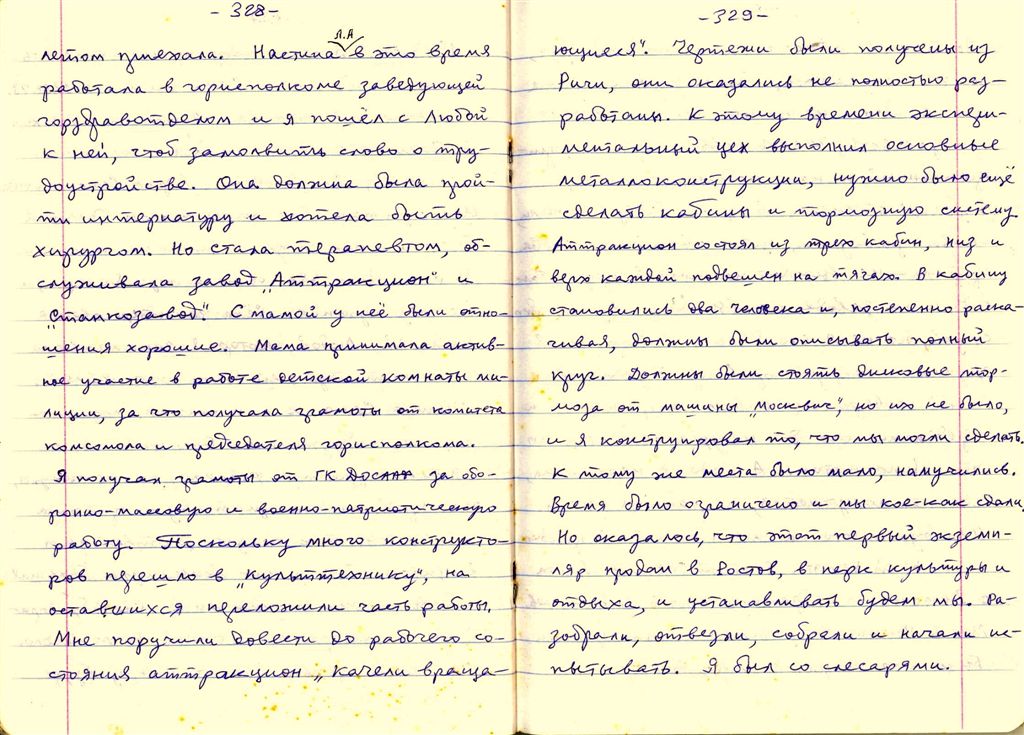 - 328 -
летом приехала. Настина Л.А в это время
работала в горисполкоме заведующей
горздравотделом и я пошёл с Любой
к ней, чтоб замолвить слово о тру-
доустройстве. Она должна была прой-
ти интернатуру и хотела быть
хирургом. Но стала терапевтом, об-
служивала завод „Аттракцион" и
„Станкозавод". С мамой у неё были отно-
шения хорошие. Мама принимала актив-
ное участие в работе детской комнаты ми-
лиции, за что получала грамоты от комитета
комсомола и председателя горисполкома.
Я получал грамоты от ГК ДОСААФ за обо-
ронно-массовую и военно-патриотическую
работу. Поскольку много конструкто-
ров перешло в „Культтехнику", на
оставшихся переложили часть работы.
Мне поручили довести до рабочего со-
стояния аттракцион „Качели враща-
- 329 -
ющиеся". Чертежи были получены из
Риги, они оказались не полностью раз-
работаны. К этому времени экспери-
ментальный цех выполнил основные
металлоконструкции, нужно было ещё
сделать кабины и тормозную систему.
Аттракцион состоял из трех кабин, низ и
верх каждой подвешен на тягах. В кабину
становились два человека и, постепенно раска-
чивая, должны были описывать полный
круг. Должны были стоять дисковые тор-
моза от машины „Москвич", но их не было,
и я конструировал то, что мы могли сделать.
К тому же места было мало, намучились.
Время было ограничено и мы кое-как сдали.
Но оказалось, что этот первый экзем-
пляр продан в Ростов, в парк культуры и
отдыха, и устанавливать будем мы. Ра-
зобрали, отвезли, собрали и начали ис-
пытывать. Я был со слесарями.